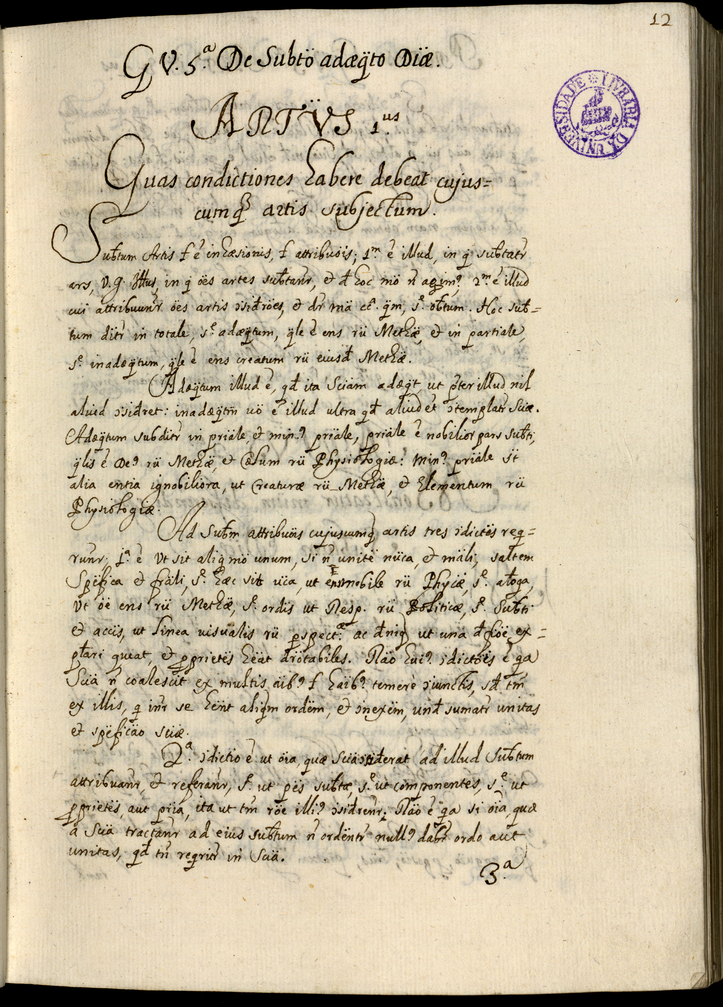 12
LIVRARIA DA UNIVERSIDADE
QV. 5.ª De Subto adæq̃to Diæ.
ARTVS 1.us
Quas condictiones habere debeat cujus=
cumq̃ artis subjectum.
Subtum Artis ł ẽ inhæsionis, ł attribuõis; 1.m ẽ illud, in q̃ subtatr
ars, V.G. Ittus, in q̃ ões artes subtanr, et đ hoc mõ ñ agim9. 2.m ẽ illud
cui attribuunr̃ ões artis ↄsidrões, et dr̃ mã cc.ª q̃m, s.e obtum. Hoc sub=
tum ditr in totale, s.e adæq̃tum, q̃le ẽ ens rũ Methæ, et in partiale,
s.e inadæq̃tum, q̃le ẽ ens creatum rũ eiusđ Methæ.
Adæq̃tum illud ẽ, qđ ita Sciam adæq̃t ut p̃ter illud nil
aliud ↄsidret: inadæq̃tm vò ẽ illud ultra qđ aliud et ↄtemplatr Sciæ.
Adæq̃tum subditr in priãle, et min9 priãle, priãle ẽ nobilior pars subti,
q̃lis ẽ De9 rũ Methæ, et cælum rũ Physiologiæ: Min9 priãle st
alia entia ignobiliora, ut Creaturæ rũ Methæ, et Elementum rũ
Physiologiæ.
Ad Subtm attribuõis cujuscumq̃ artis tres ↄdictẽs req̃=
runr̃. 1.ª ẽ Ut sit aliq̃ mõ unum, si ñ unitẽ nũca, et mãli, saltem
Spẽfica et frãli, s.e hæc sit uĩca, ut ens mobile rũ Phycæ, s.e ałoga,
Ut õe ens rũ Methæ, s.e ordis ut Resp. rũ Politicæ, s.e Subti
et accis, ut linea uisualis rũ p̱spect.æ ac đniq̃ ut una đfcõe, ex=
p̃tari queat, et p̱prietẽs hẽat đrõtabiles. Rão hui9 ↄdictẽs ẽ q̃a
Sciã ñ coalescit ex multis, aib9 ł haib9 temere ↄiunctis, sđ tm̃
ex illis, q̃ inr̃ se hẽnt aliq̃m ordẽm, et ↄnexẽm, unđ sumatr unitas
et spẽficão sciæ.
2.ª ↄdictio ẽ ut õia, quæ Sciã ↄsiderat ad illud Subtum
attribuanr̃, et referanr̃, s.e ut p̱es subtæ, s.e ut componentes, s.e ut
p̱prietẽs, aut prĩia, ita ut tm̃ rõe illi9 ↄsidrenr̃. Rão ẽ q̃a si õia quæ
a Sciã tractanr̃ ad eius subtum ñ ordẽntr null9 dabr̃ ordo aut
unitas, qđ tñ req̃ritr in Sciã.
3.ª